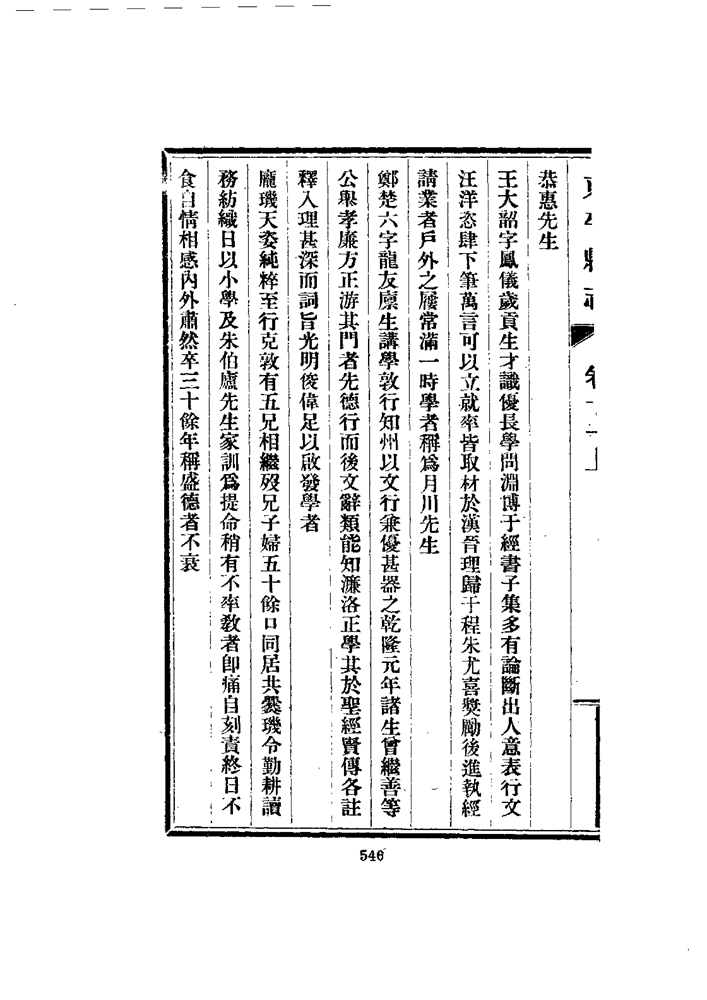 恭惠先生
王大韶字鳳儀歲貢生才識優長學問淵博于經書子集多有論斷出人意表行文
汪洋恣肆下筆萬言可以立就率皆取材於漢晉理歸于程朱尤喜獎勵後進執經
請業者戶外之屨常滿一時學者稱爲月川先生
鄭楚六字龍友廩生講學敦行知州以文行兼優甚器之乾隆元年諸生曾繼善等
公舉孝廉方正游其門者先德行而後文辭類能知濂洛正學其於聖經賢傳各註
釋入理甚深而詞旨光明俊偉足以啟發學者
龐璣天姿純粹至行克敦有五兄相繼歿兄子婦五十餘口同居共爨璣令勤耕讀
務紡織日以小學及朱伯廬先生家訓爲提命稍有不率教者卽痛自刻責終日不
食自情相感內外肅然卒三十餘年稱盛德者不衰
546